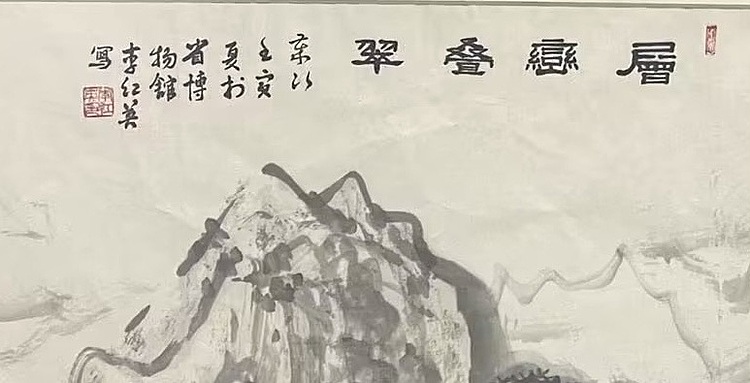 層巒叠翠
歲次
壬寅
夏於
省博
物館
李红英
寫